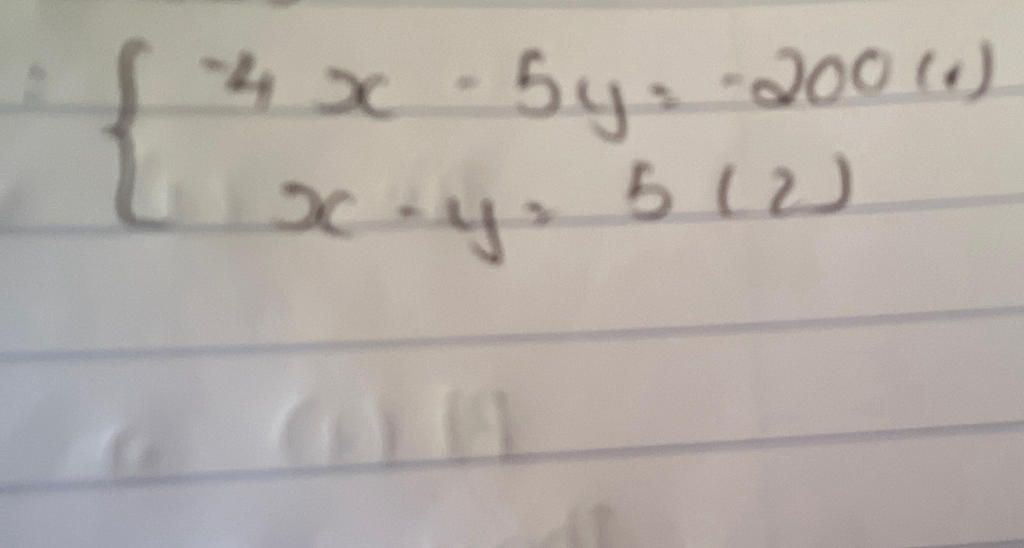 -4x - 5y = -200 (1)
x - y = 5 (2)